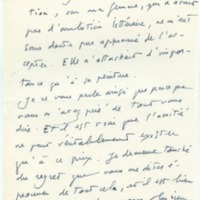 tion, car ma femme, qui a avait
pas d'ambition littéraire, ne m'ent
sans doute pas approuvé de l'ac-
cepter. Elle n'attachait d'impor-
tance qu'à sa peinture.
Je ne vous parle ainsi que parce que
vous m' de tout vous
dire. Et il est vrai que l'amitié
ne peut véritablement exister
qu'à ce prix. Je demeure touché
du regret que vous me dites é-
prouver de tout cela, et il est bien